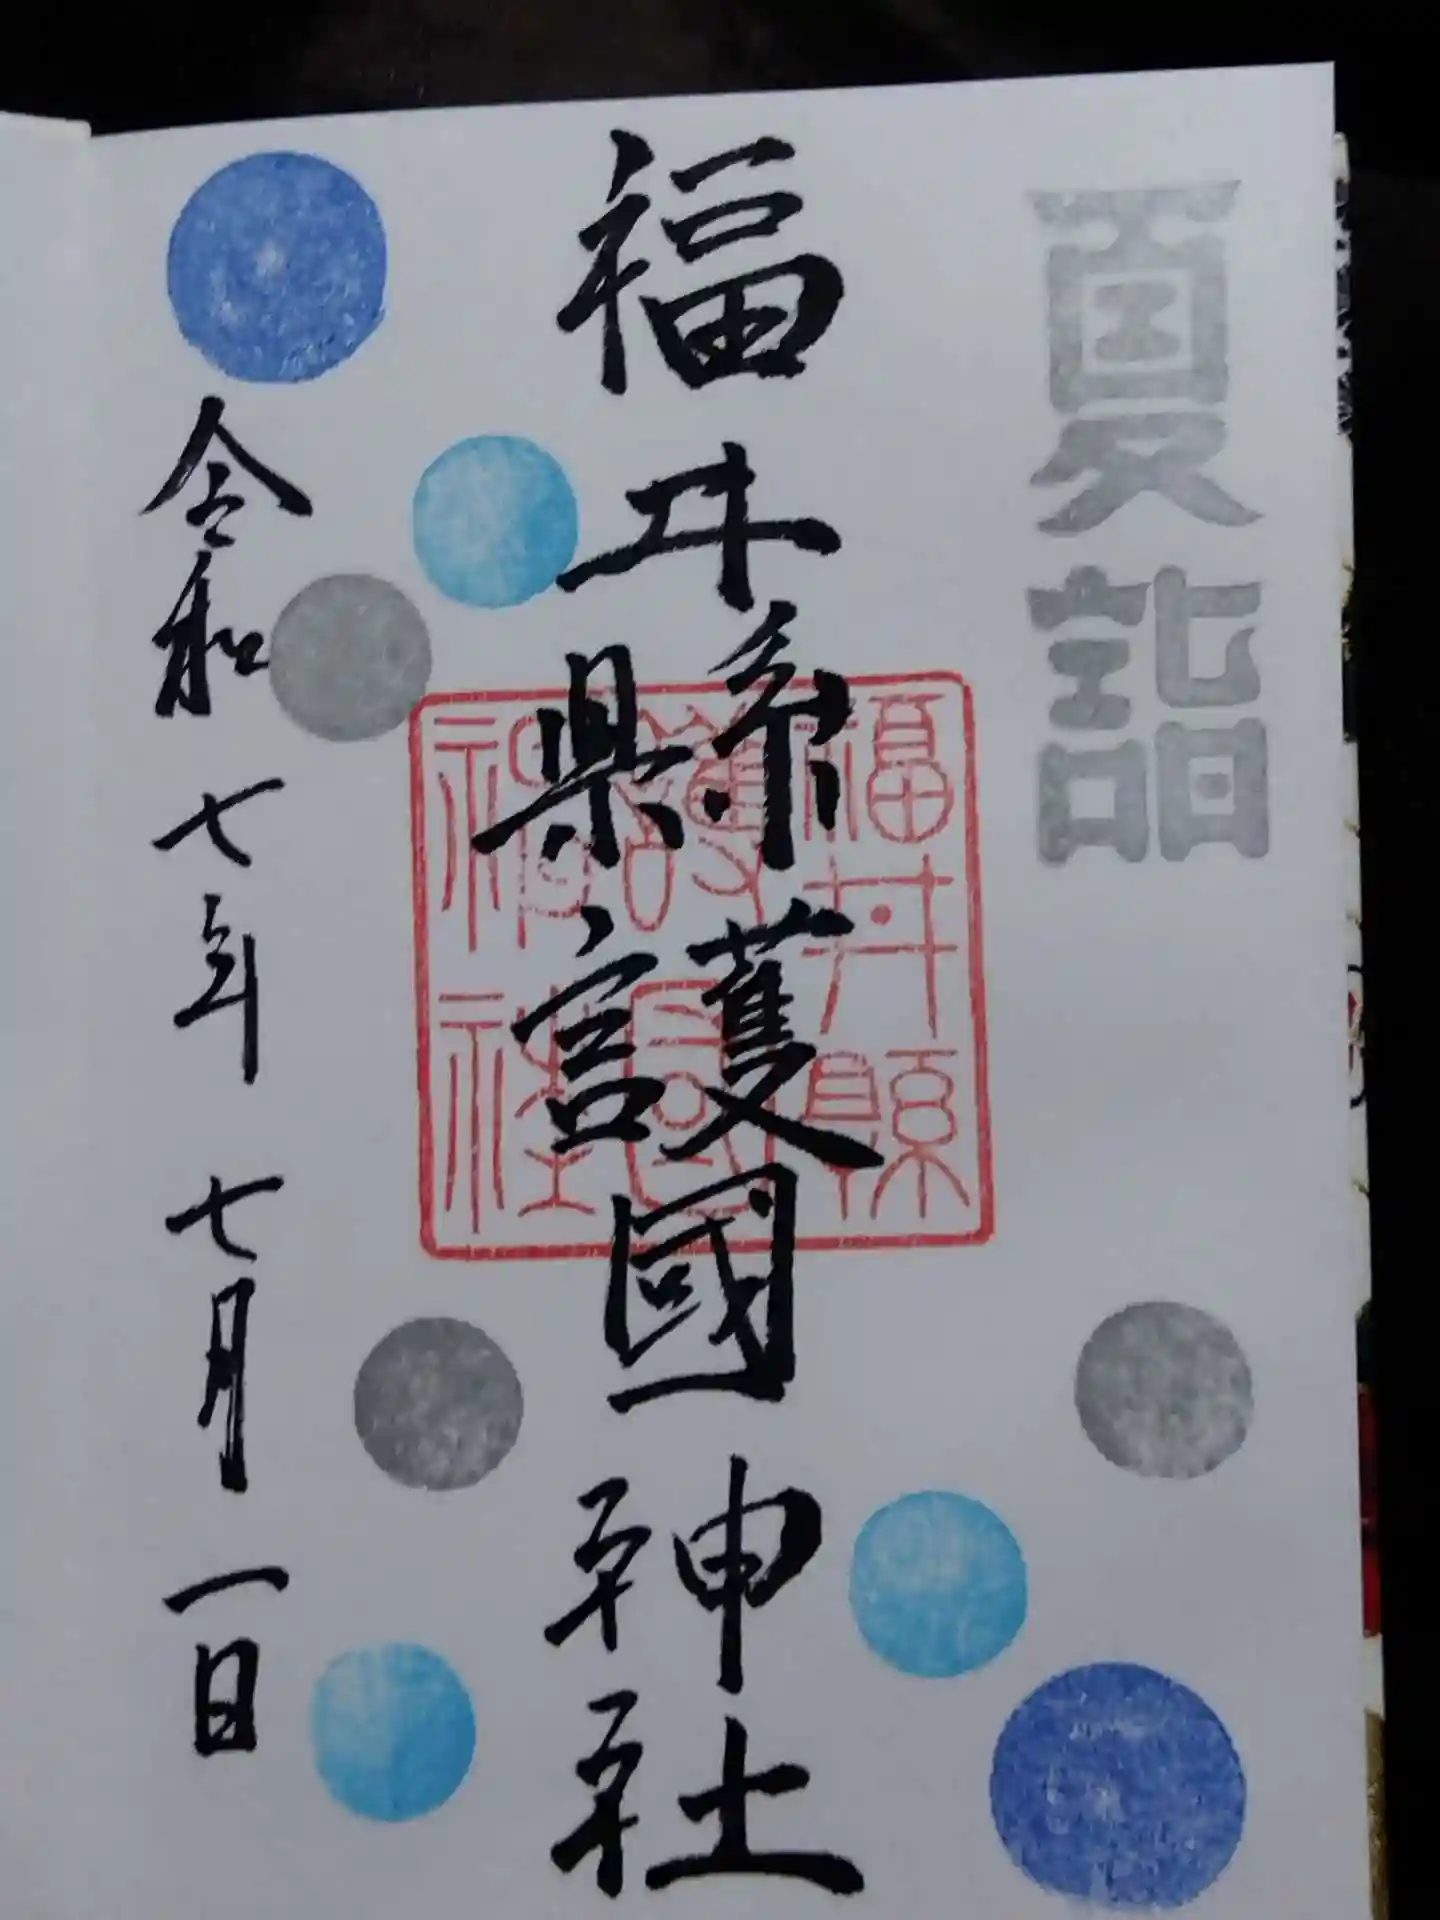 夏詣
福井縣護國神社
福井縣
護國
神社
令和七年七月一日